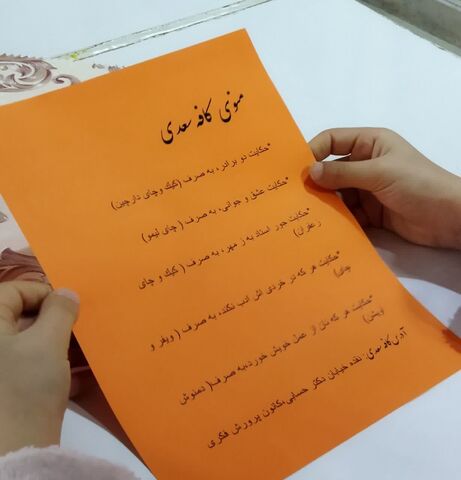 منوی کافه سعدی
*حکایت دو برادر، به صرف (کیک وچای دارچین)
*حکایت عشق و جوانی، به صرف ( چای لیمو)
*حکایت جور استاد به ز مهر، به صرف ( کیک و چای
زعفران)
*حکایت هر که در خردی اش ادب نکنند، به صرف ( ویفر و
چای)
*حکایت هر که نان از عمل خویش خورد،به صرف( دمنوش
آویش)
آدرس کافه سعدی: نقده خیابان دکتر حسابی،کانون پرورش فکری